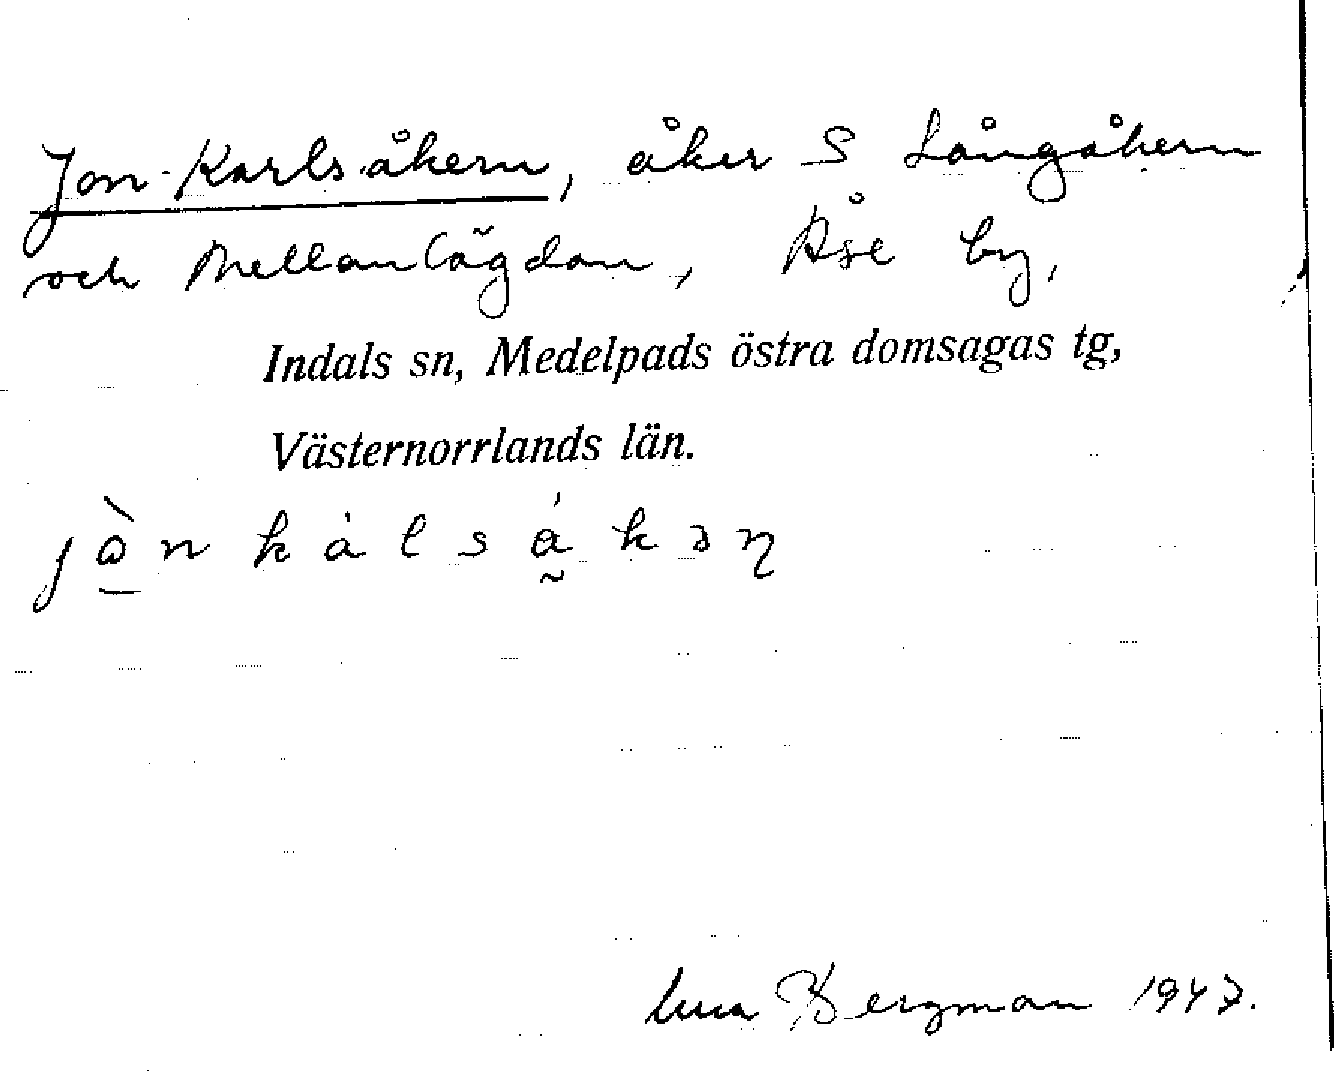 Jon-Karlsåkern, åker S Långåkern
och Mellanlägdan, Åse by,
Indals sn, Medelpads östra domsagas tg,
Västernorrlands län.
Bergman 1947.